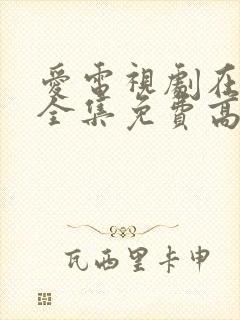 愛電視劇在
全集免費高
瓦西里卡申